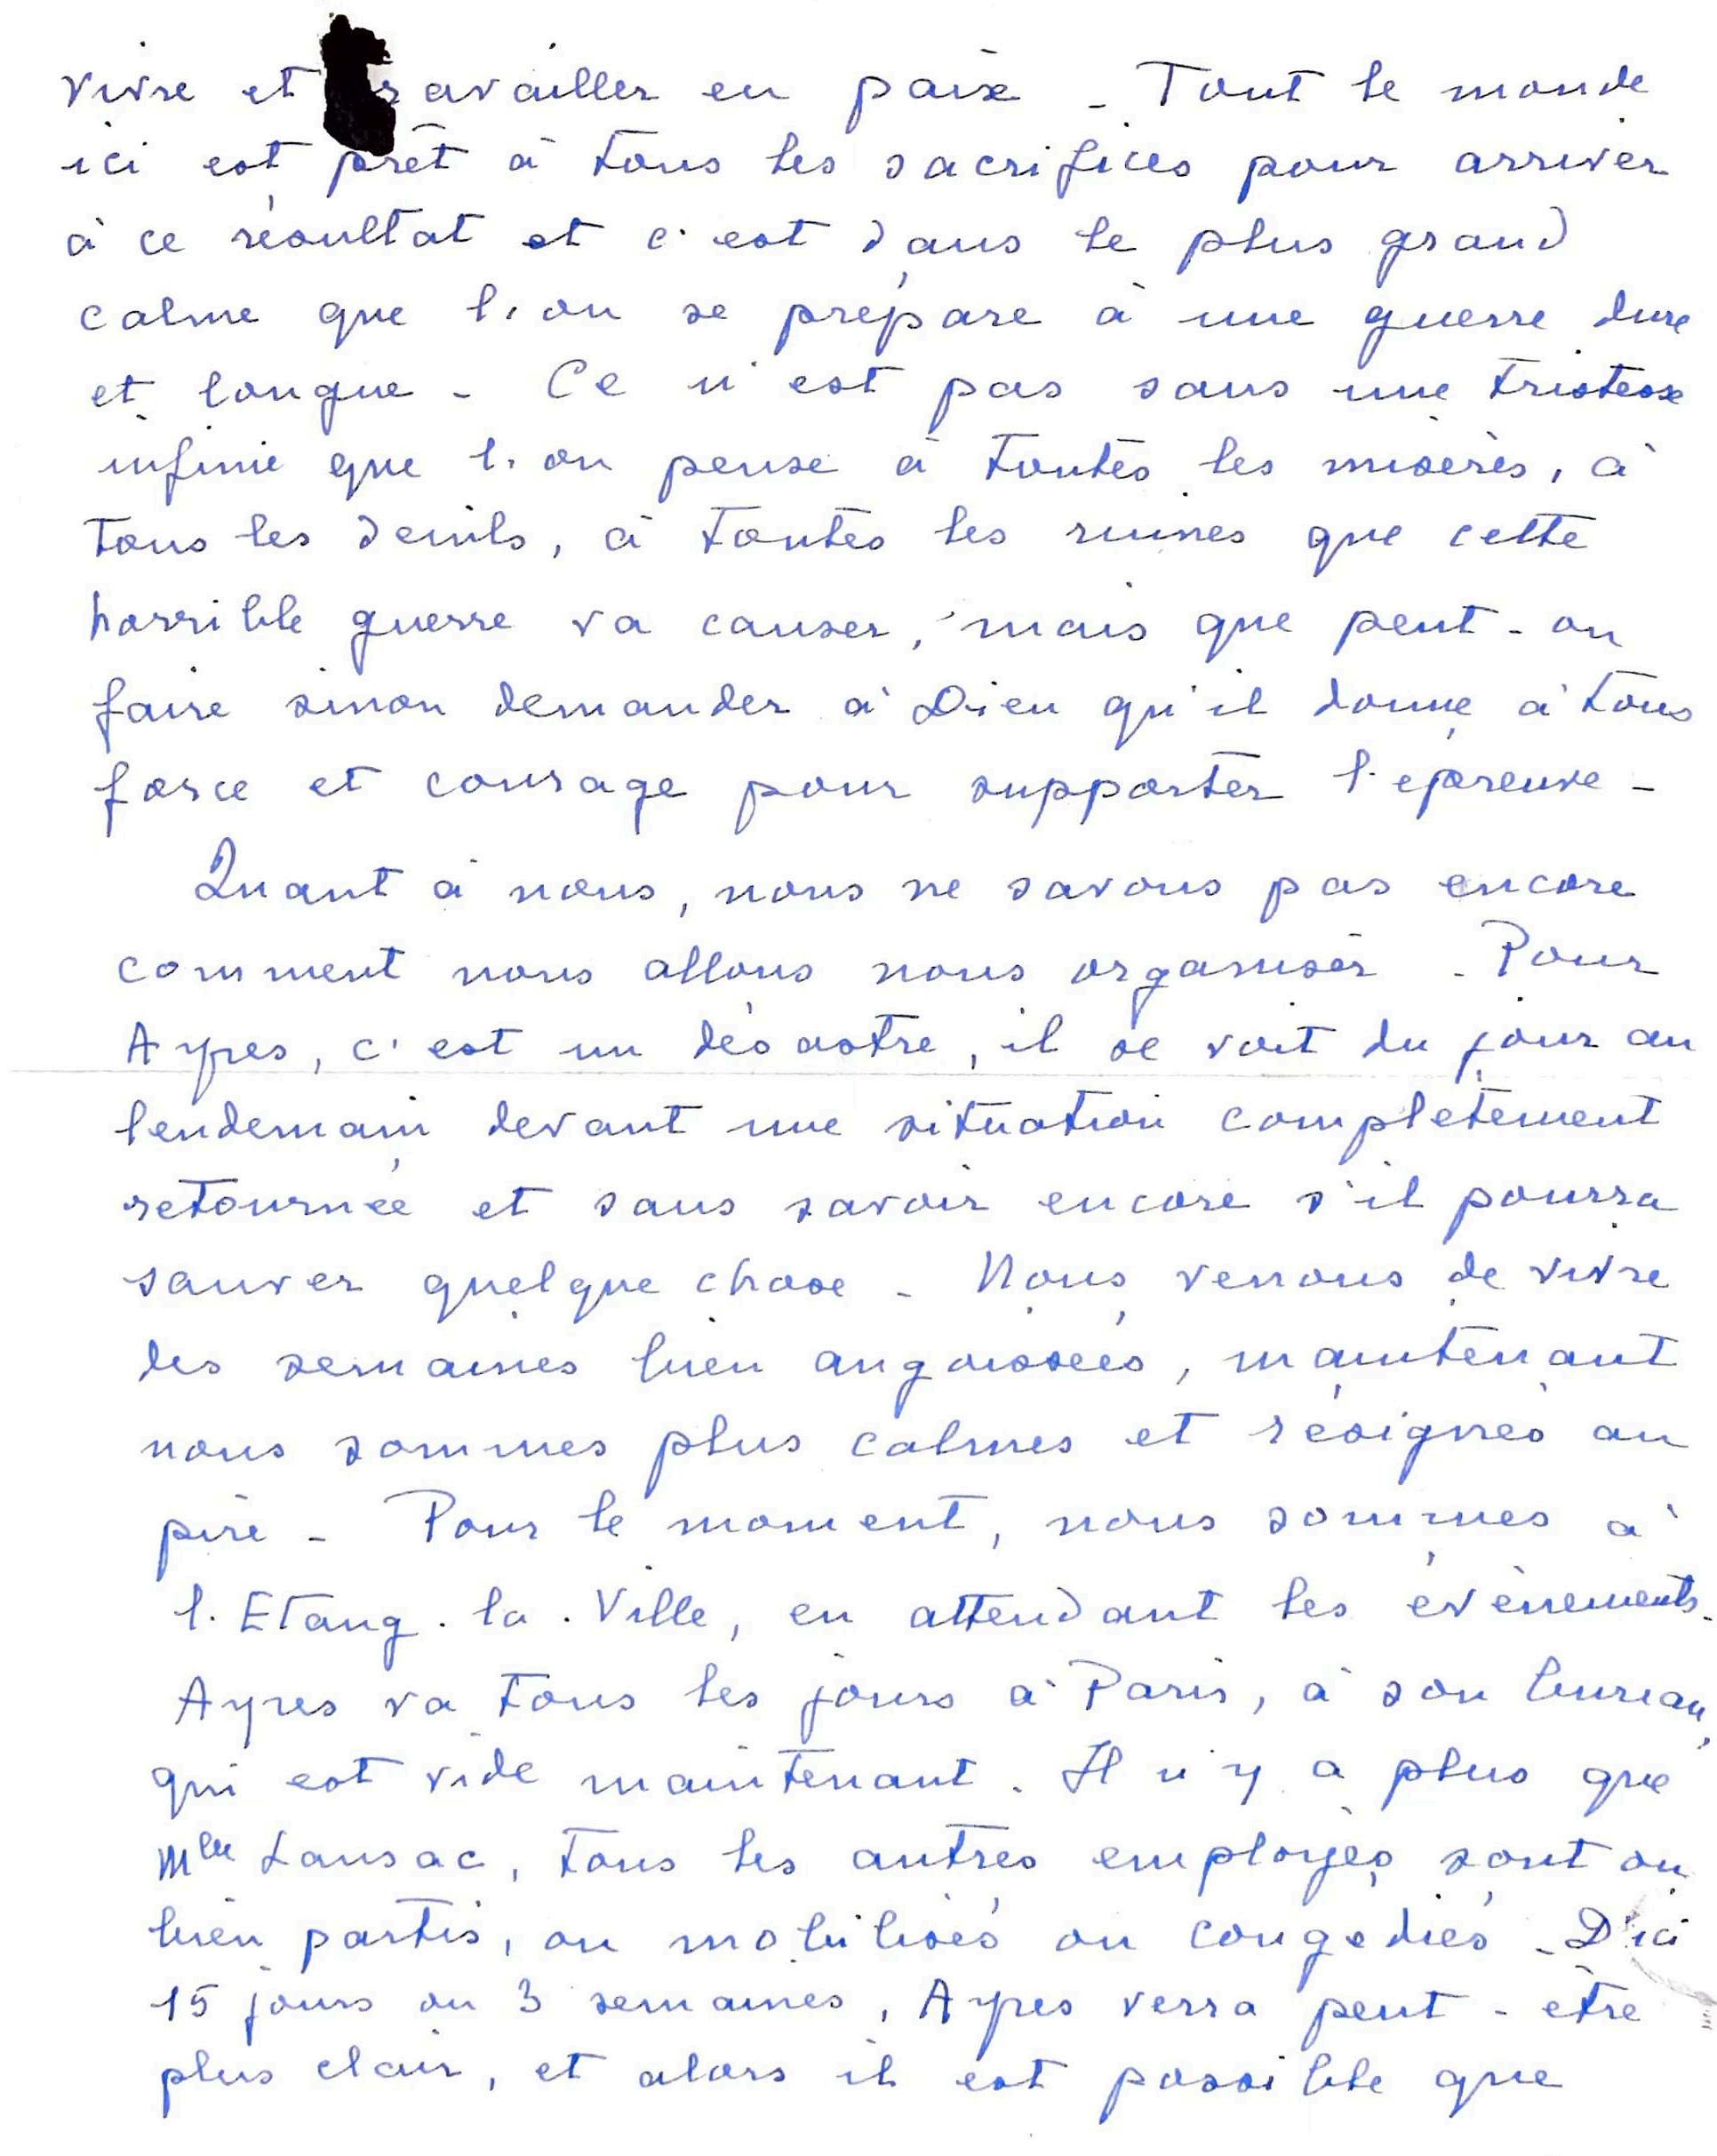 vivre et travailler en paix - Tout le monde
ici est prêt à tous les sacrifices pour arriver
à ce résultat et c'est dans le plus grand
calme que l'on se prépare à une guerre dure
et longue - Ce n'est pas sans une tristesse
infinie que l'on pense à toutes les misères, à
tous les deuils, à toutes les ruines que cette
horrible guerre va causer, mais que peut-on
faire sinon demander à Dieu qu'il donne à tous
force et courage pour supporter l'épreuve -
Quant à nous, nous ne savons pas encore
comment nous allons nous organiser - Pour
Ayres, c'est un désastre, il se voit du jour au
lendemain devant une situation complètement
retournée et sans savoir encore s'il pourra
sauver quelque chose - Nous venons de vivre
des semaines bien angoissées, maintenant
nous sommes plus calmes et résignés au
pire - Pour le moment, nous sommes à
l'Etang-la-Ville, en attendant les évènements.
Ayres va tous les jours à Paris, à son bureau,
qui est vide maintenant. Il n'y a plus que
Mlle Lansac, tous les autres employés sont ou
bien partis, ou mobilisés ou congédiés - D'ici
15 jours ou 3 semaines, Ayres verra peut-être
plus clair, et alors il est possible que